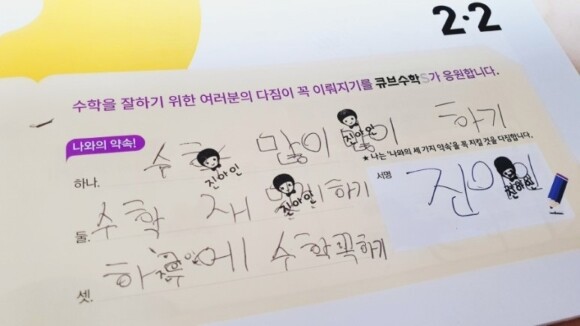 2·2
수학을 잘하기 위한 여러분의 다짐이 꼭 이뤄지기를 큐브수학S가 응원합니다.
나와의 약속!
하나. 수학 많이 하기
진아인
진아인
★ 나는 '나와의 세 가지 약속'을 꼭 지킬 것을 다짐합니다.
서명 진아인
진아인
둘. 수학 재 하기
진아인
셋. 하루에 수학꼭하기